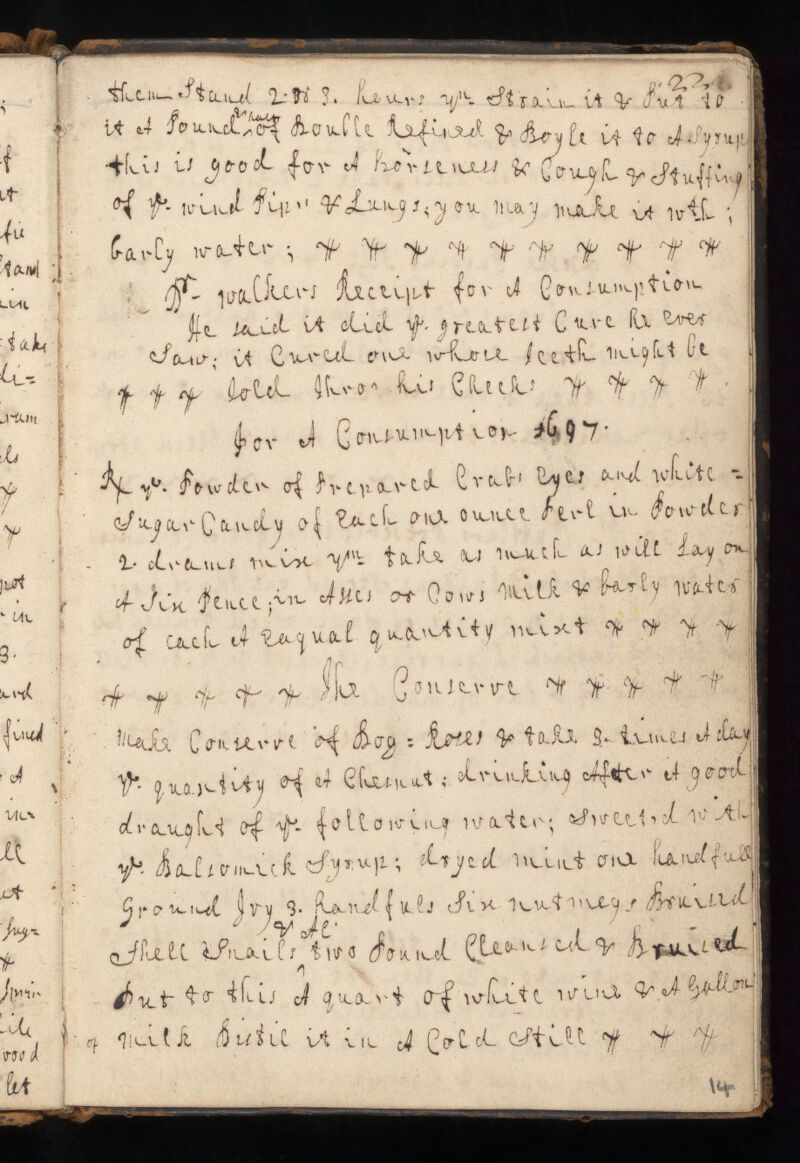 22
them Stand 2 or 3. hours yn. Strain it & Put to
it A Pound of Double Refined & Boyle it to A Syrup
this is good for A horseness & Cough & Stuffing
of ye. wind Pipe & Lungs; you may make it wth;
barly water;
Dr. walkers Receipt for A Consumption
He said it did ye. greatest Cure he ever
Saw; it Cured one whose teeth might be
told thro' his Cheeks
for A Consumption 1697.
Rx ye. Powder of Prepared Crabs Eyes and white =
Sugar Candy of Each one ounce Perl in Powder
2. drams mix ym. take as much as will Lay on
A Six Pence; in Asses or Cows Milk & barly water
of each A Eaqual quantity mixt
The Conserve
Make Conserve of Dog = Roses & take 3. times A day
ye. quantity of A Chesnut; drinking After A good
draught of ye. following water; Sweet.d with
ye. Balsomick Syrup; dryed mint one handfull
Ground Ivy 3. handfuls Six nutmegs Bruised
Shell Snails two Pound Cleansed & Bruised
Put to this A quart of white wine & A Gallon
of Milk Distil it in A Cold Still
14